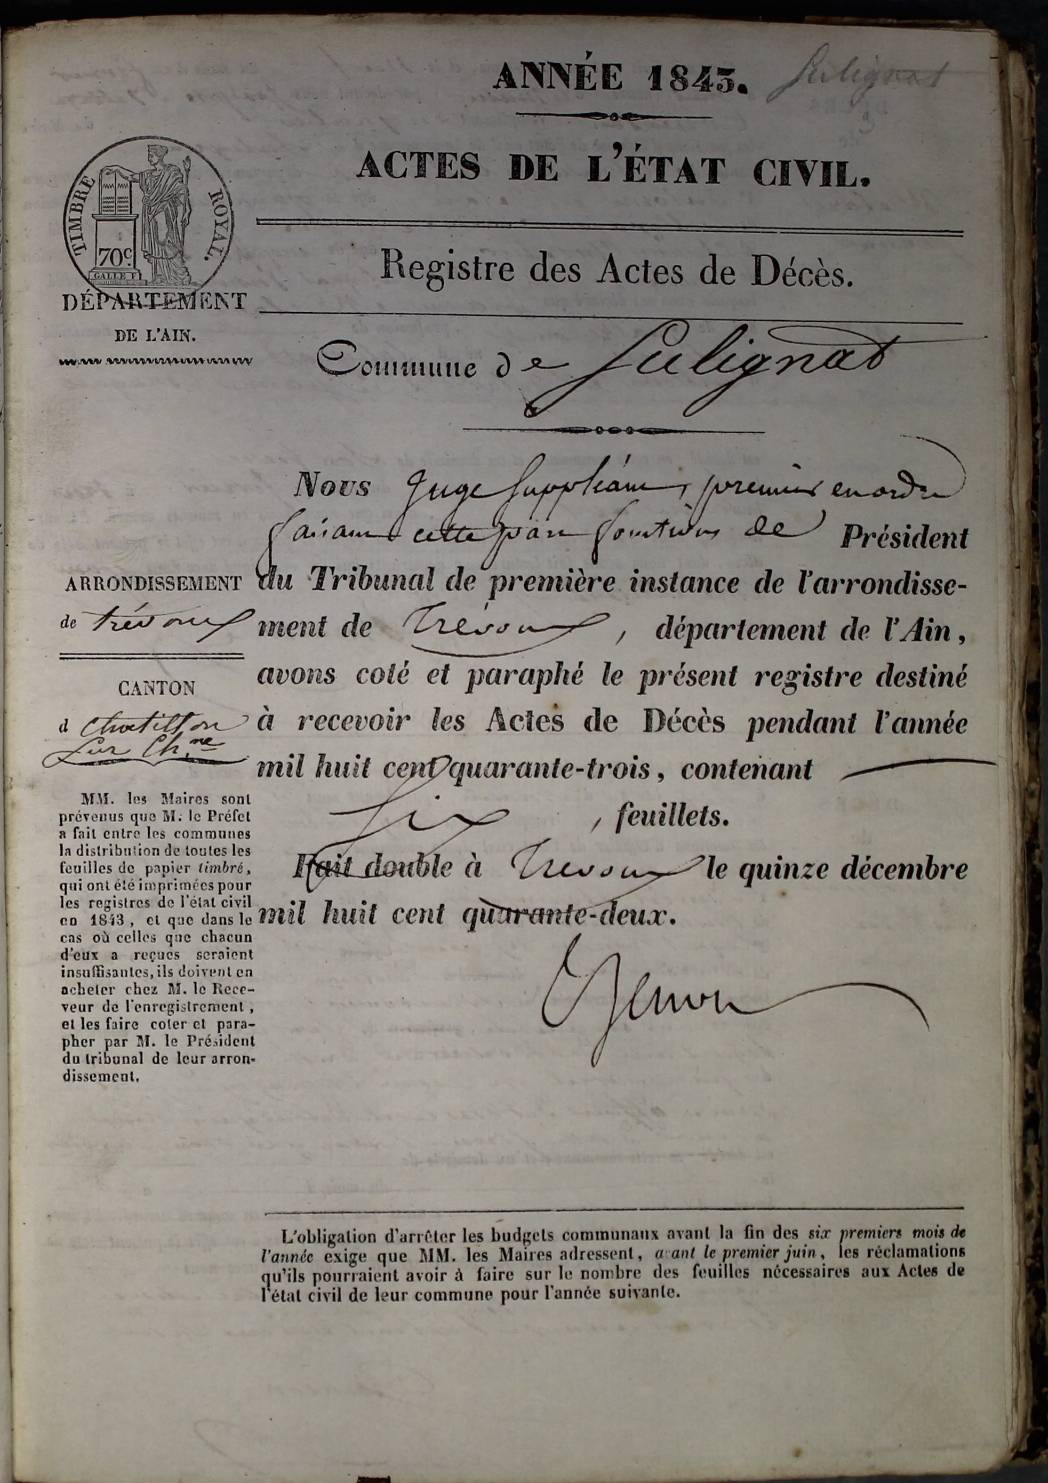 ANNÉE 1843.
Sulignat
ACTES DE L'ÉTAT CIVIL.
TIMBRE ROYAL.
70c
GALLE
Registre des Actes de Décès.
DÉPARTEMENT
DE L'AIN.
Commune de Sulignat
Nous Juge Suppléant, premier en ordre
faisant cette part fonctions de Président
ARRONDISSEMENT
de trévoux
du Tribunal de première instance de l'arrondisse-
ment de Trévoux, département de l'Ain,
avons coté et paraphé le présent registre destiné
CANTON
d Chatillon
sur Ch.ne
à recevoir les Actes de Décès pendant l'année
mil huit cent quarante-trois, contenant
Six, feuillets.
Fait double à Trévoux le quinze décembre
mil huit cent quarante-deux.
MM. les Maires sont
prévenus que M. le Préfet
a fait entre les communes
la distribution de toutes les
feuilles de papier timbré,
qui ont été imprimées pour
les registres de l'état civil
en 1843, et que dans le
cas où celles que chacun
d'eux a reçues seraient
insuffisantes, ils doivent en
acheter chez M. le Rece-
veur de l'enregistrement,
et les faire coter et para-
pher par M. le Président
du tribunal de leur arron-
dissement.
L'obligation d'arrêter les budgets communaux avant la fin des six premiers mois de
l'année exige que MM. les Maires adressent, avant le premier juin, les réclamations
qu'ils pourraient avoir à faire sur le nombre des feuilles nécessaires aux Actes de
l'état civil de leur commune pour l'année suivante.